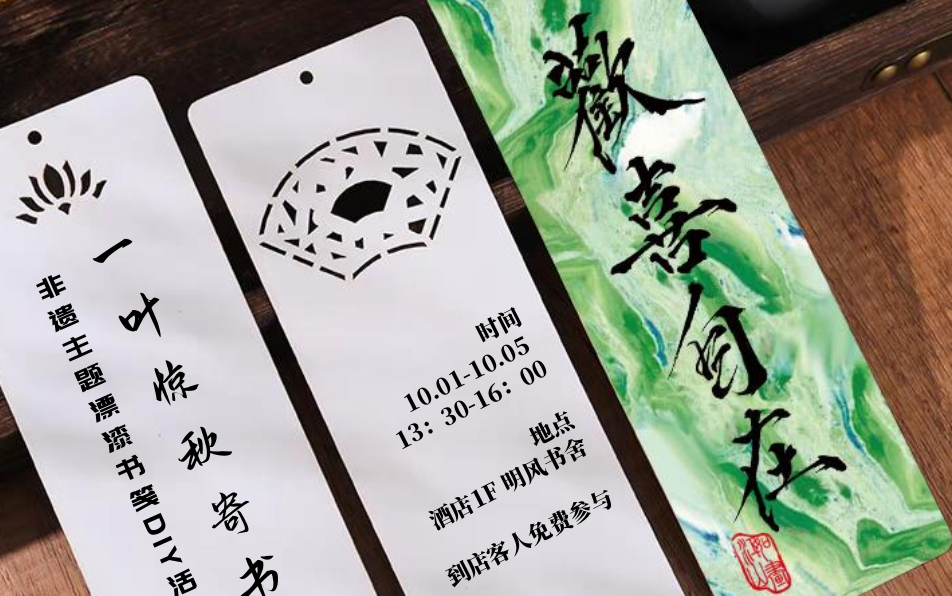 一叶惊秋寄书
非遗主题漂漆书笺DIY活
时间
10.01-10.05
13：30-16：00
地点
酒店1F 明风书舍
到店客人免费参与
歡喜自在